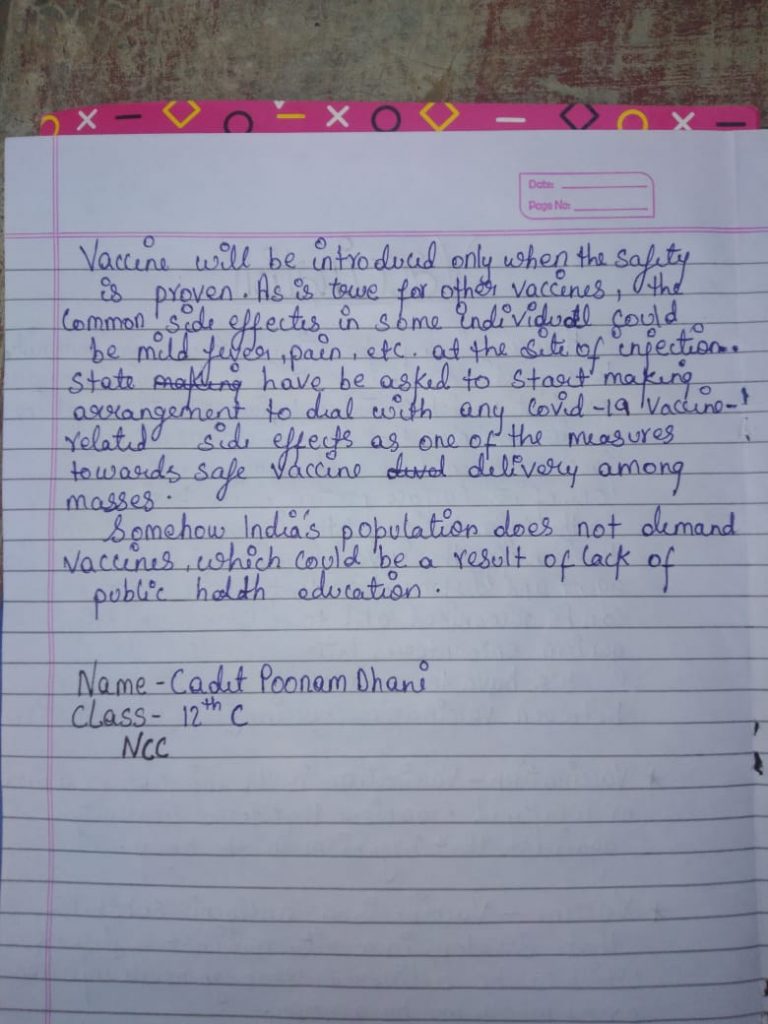 Date:
Page No:
Vaccine will be introduced only when the safity
is proven. As is towe for other vaccines, the
Common side effectes in some individual could
be mild fever, pain, etc. at the site of injection.
State making have be asked to start making
arrangement to dial with any Covid-19 Vaccine-
related side effects as one of the measures
towards safe Vaccine delivery among
masses.
Somehow India's population does not demand
Vaccines, which could be a result of lack of
public haldth education.
Name - Cadit Poonam Dhani
Class - 12th C
NCC